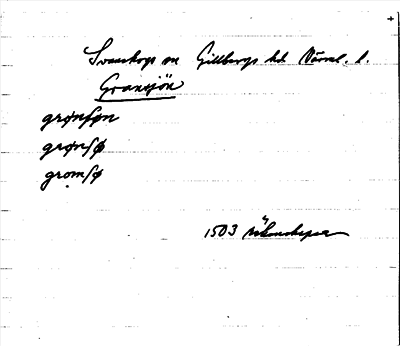 Svanskogs sn Gillbergs hd Värml. l.
Gransjön
grønſøn
grønſø
gromſø
1503